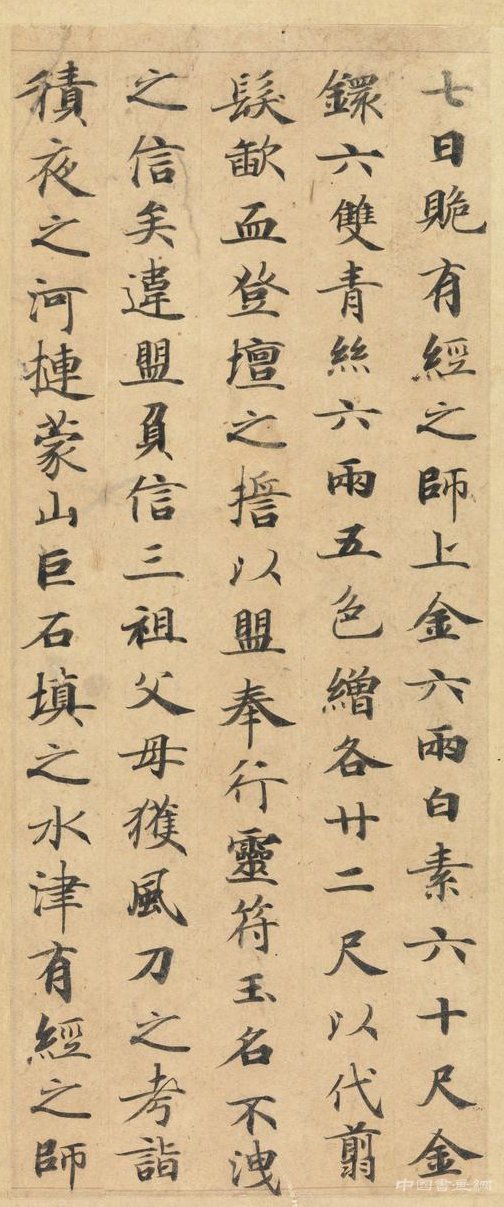 七日賧有經之師上金六兩白素六十尺金
鐶六雙青絲六兩五色繒各廿二尺以代翦
髮歃血登壇之擔以盟奉行靈符玉名不洩
之信矣違盟負信三祖父母獲風刀之考詣
積夜之河摙蒙山巨石填之水津有經之師
中國書畫網